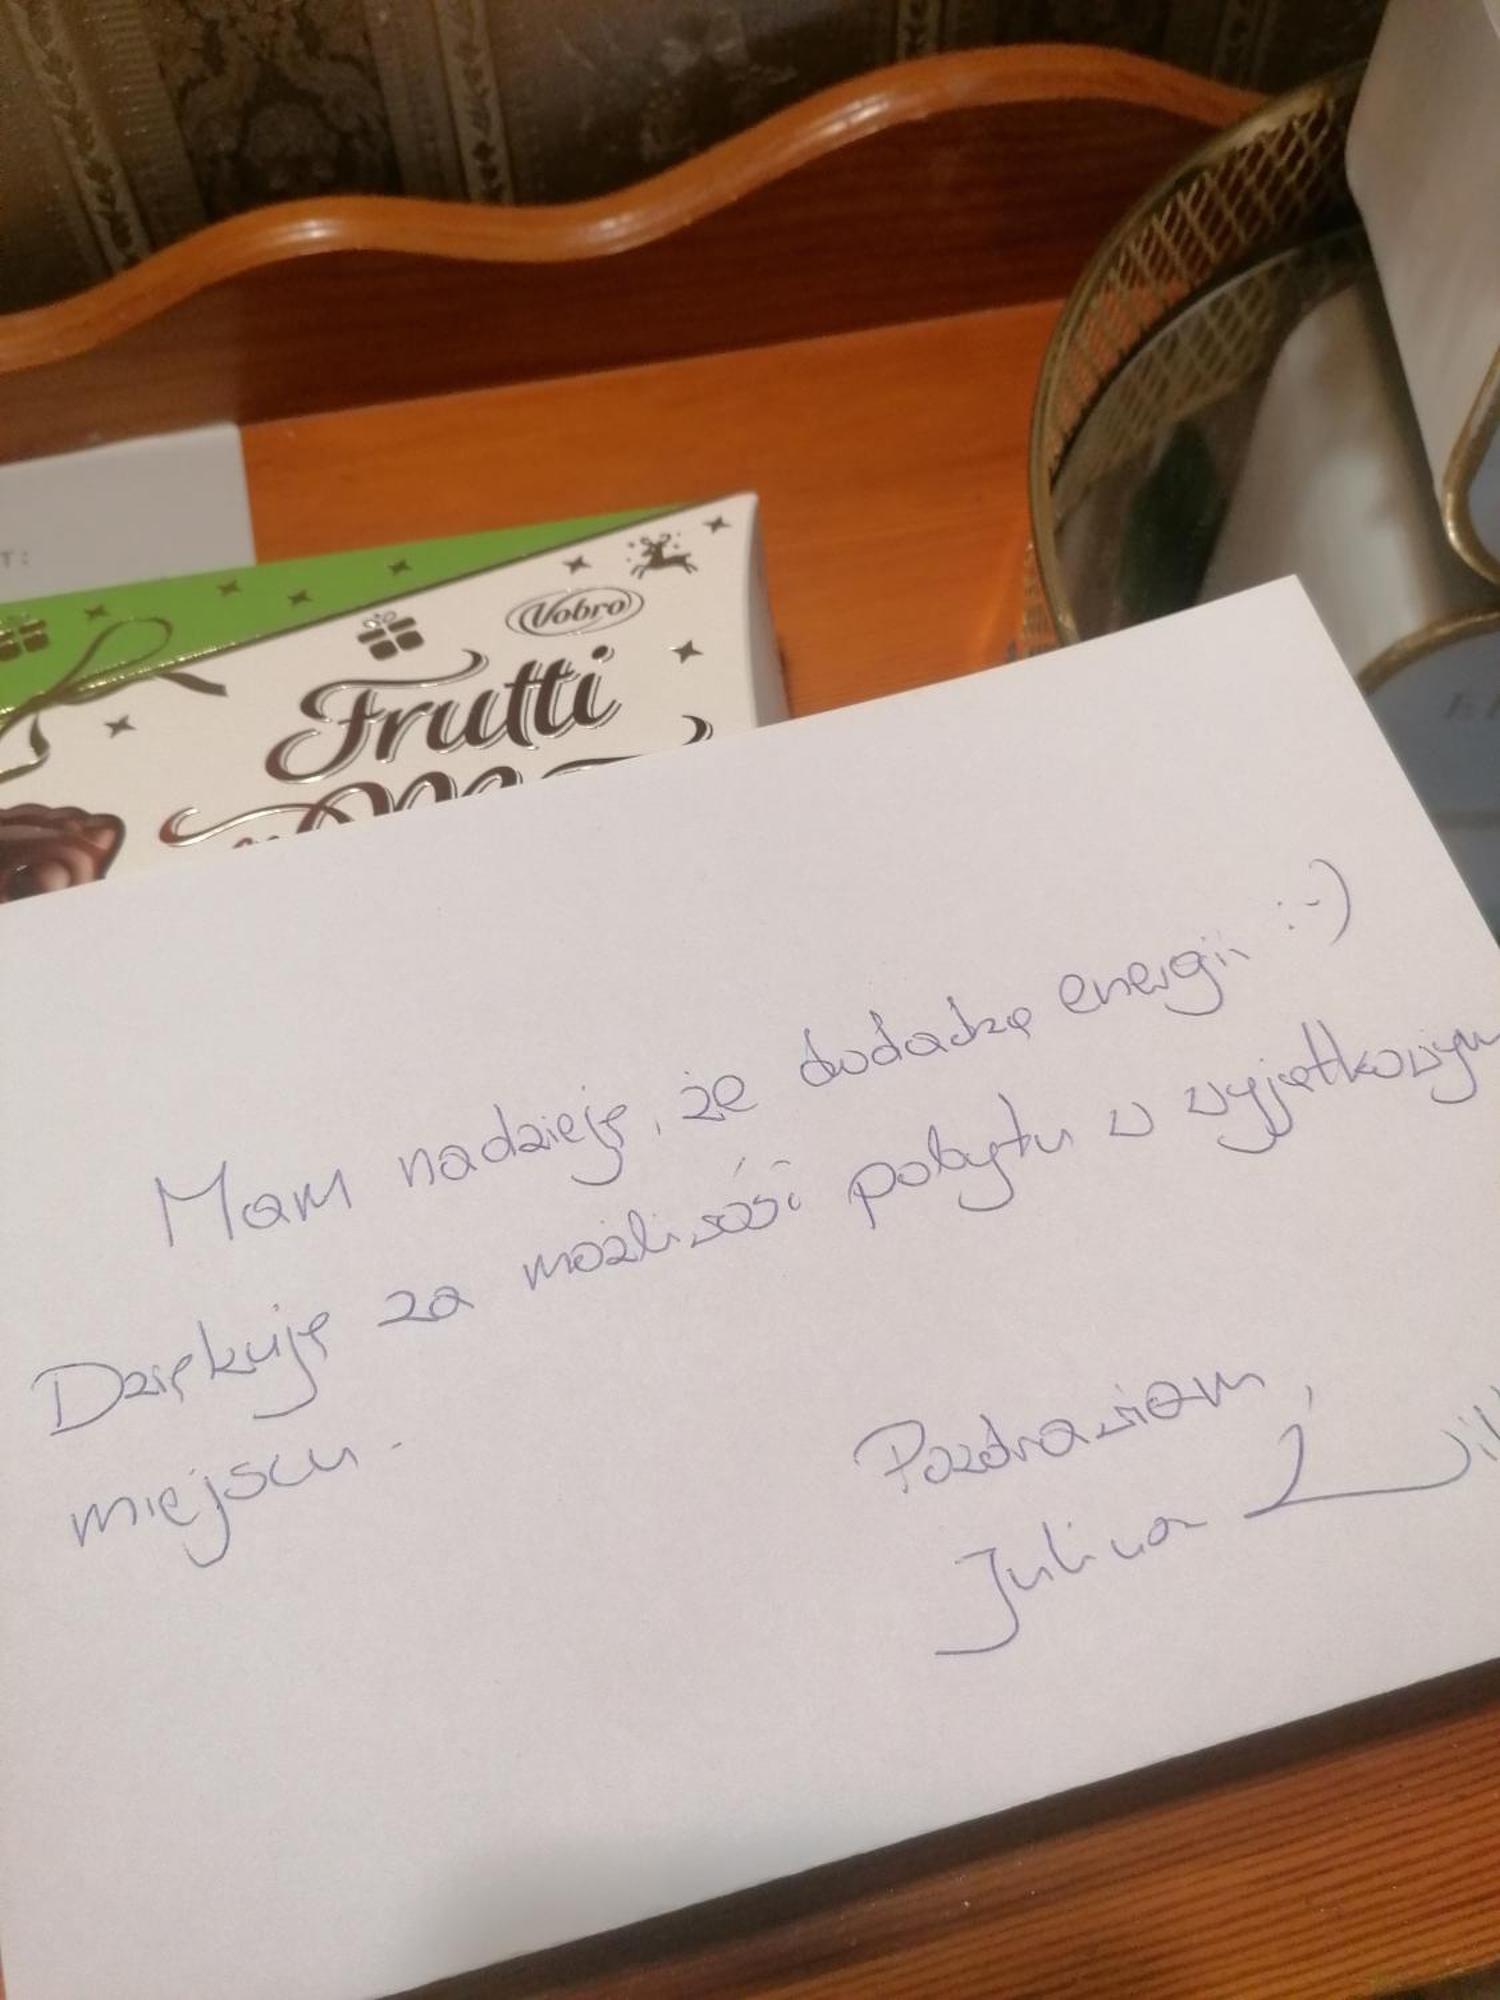 T:
Vobro
Frutti
Mam nadzieję, że dodadzą energii :-)
Dziękuję za możliwość pobytu w wyjątkowym
miejscu.
Pozdrawiam,